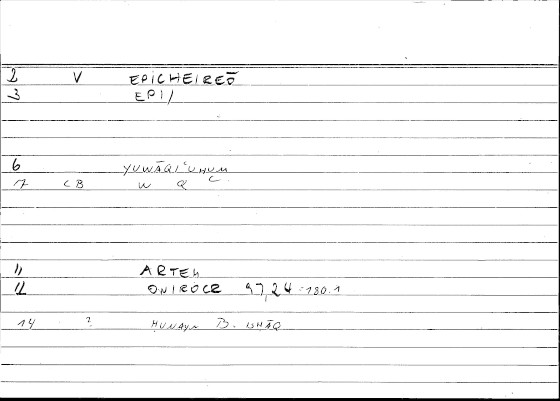 2 V EPICHEIREŌ
3 EPI/
6 YUWĀQIʿUHUM
7 CB W Q ʿ
11 ARTEM
12 ONIROCR 97,24 = 180.1
14 ? ḤUNAYN B. ISḤĀQ